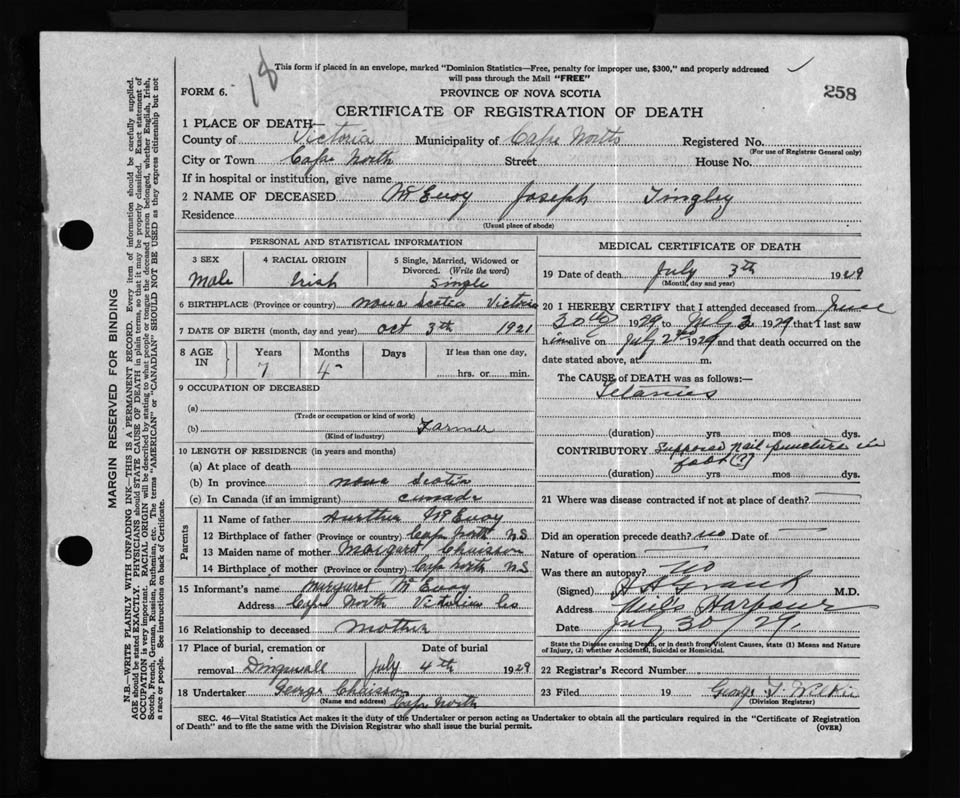 18
This form if placed in an envelope, marked "Dominion Statistics—Free, penalty for improper use, $300," and properly addressed
will pass through the Mail "FREE"
FORM 6.
PROVINCE OF NOVA SCOTIA
258
CERTIFICATE OF REGISTRATION OF DEATH
1 PLACE OF DEATH—
County of Victoria Municipality of Cape North Registered No.
(For use of Registrar General only)
City or Town Cape North Street House No.
If in hospital or institution, give name
2 NAME OF DECEASED McEvoy Joseph Tingley
Residence
(Usual place of abode)
PERSONAL AND STATISTICAL INFORMATION
3 SEX 4 RACIAL ORIGIN 5 Single, Married, Widowed or
Divorced. (Write the word)
Male Irish Single
6 BIRTHPLACE (Province or country) Nova Scotia Victoria
7 DATE OF BIRTH (month, day and year) Oct 3th 1921
8 AGE IN Years Months Days If less than one day,
7 4 hrs. or min.
9 OCCUPATION OF DECEASED
(a)
(Trade or occupation or kind of work)
(b) Farmer
(Kind of industry)
10 LENGTH OF RESIDENCE (in years and months)
(a) At place of death
(b) In province Nova Scotia
(c) In Canada (if an immigrant) cunada
Parents
11 Name of father Aurther McEvoy
12 Birthplace of father (Province or country) Cape North NS
13 Maiden name of mother Margaret Chiasson
14 Birthplace of mother (Province or country) Cape North NS
15 Informant's name Margarat McEvoy
Address Cape North Victoria Co
16 Relationship to deceased Mother
17 Place of burial, cremation or Date of burial
removal Dingwall July 4th 1929
18 Undertaker George Chiasson
(Name and address) Cape North
MEDICAL CERTIFICATE OF DEATH
19 Date of death July 3th 1929
(Month, day and year)
20 I HEREBY CERTIFY that I attended deceased from June
30th 1929 to July 3 1929 that I last saw
him alive on July 2nd 1929 and that death occurred on the
date stated above, at m.
The CAUSE of DEATH was as follows:—
Tetanus
(duration) yrs mos dys.
CONTRIBUTORY Supposed nail puncture in
foot (?)
(duration) yrs. mos. dys.
21 Where was disease contracted if not at place of death?
Did an operation precede death? no Date of
Nature of operation
Was there an autopsy? no
(Signed) M.D.
Address Neil's Harbour
Date July 30/29.
State the Disease causing Death, or in death from Violent Causes, state (1) Means and Nature
of Injury, (2) whether Accidental, Suicidal or Homicidal.
22 Registrar's Record Number
23 Filed 19 George T. Wilkie
(Division Registrar)
SEC. 46—Vital Statistics Act makes it the duty of the Undertaker or person acting as Undertaker to obtain all the particulars required in the "Certificate of Registration
of Death" and to file the same with the Division Registrar who shall issue the burial permit.
(OVER)
MARGIN RESERVED FOR BINDING
N.B.—WRITE PLAINLY WITH UNFADING INK—THIS IS A PERMANENT RECORD. Every item of information should be carefully supplied.
AGE should be stated EXACTLY. PHYSICIANS should STATE CAUSE OF DEATH in plain terms, so that it may be properly classified. Exact statement of
OCCUPATION is very important. RACIAL ORIGIN will be described by stating to what people or tongue the deceased person belonged, whether English, Irish,
Scotch, French, German, Russian, Ruthenian, etc. The terms "AMERICAN" or "CANADIAN" SHOULD NOT BE USED as they express citizenship but not
a race or people. See instructions on back of Certificate.